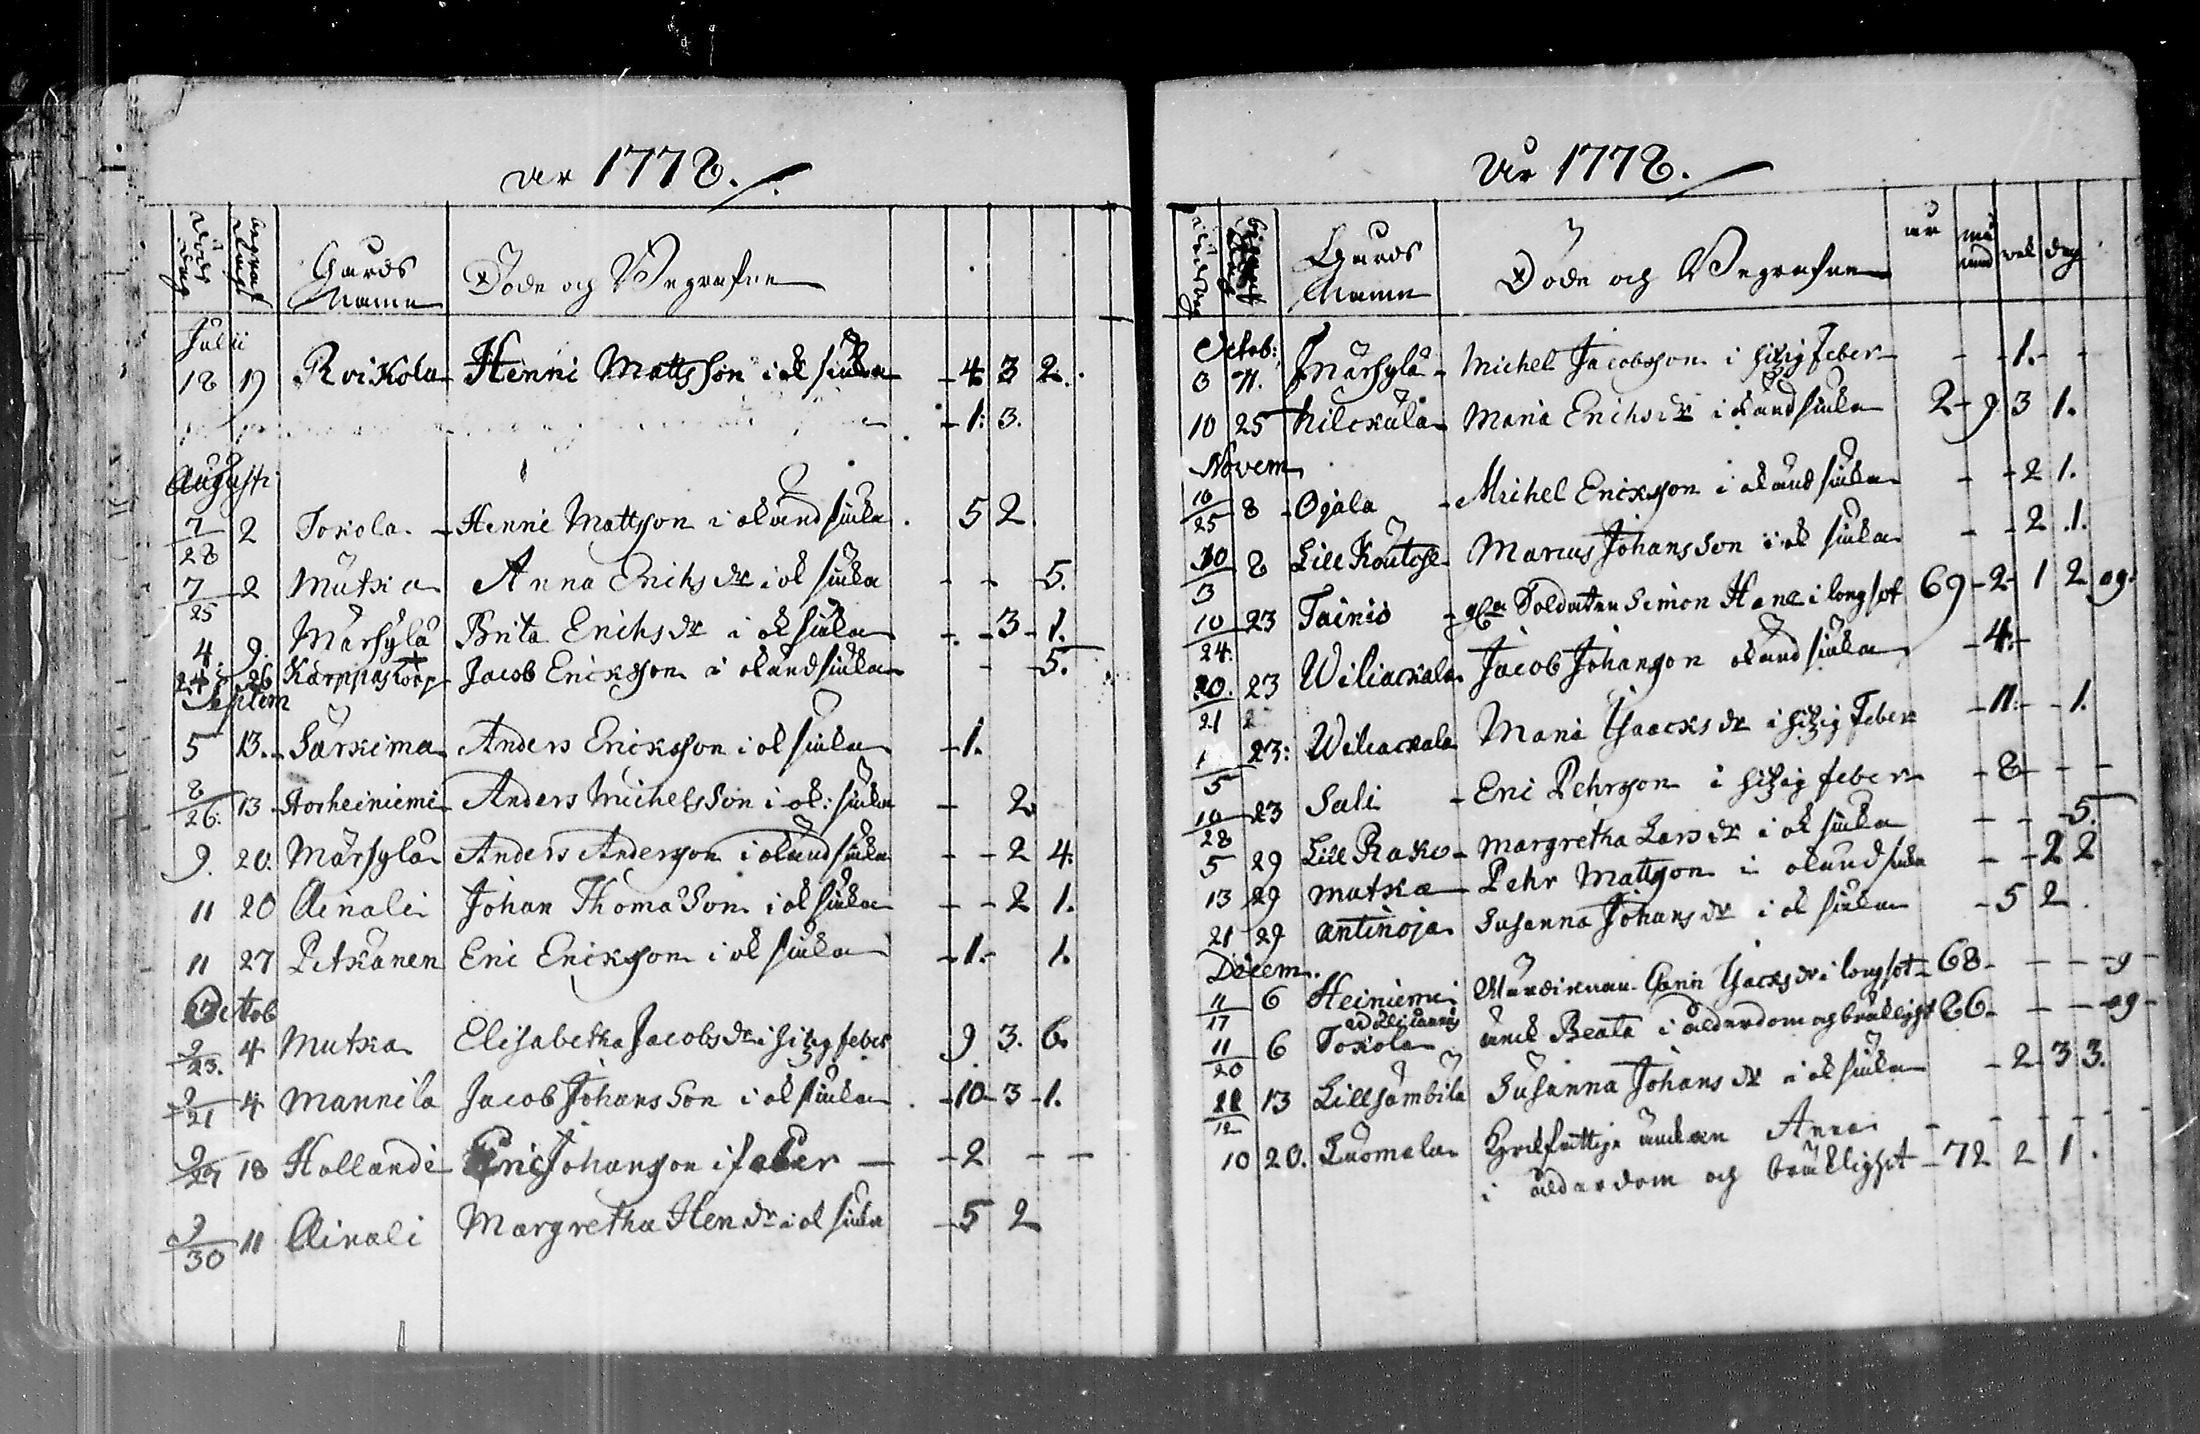 år 1778.
Döds dag begrafn dag Gårds Namn Döde och Begrafne
Julii
18 19 Roikola Henric Mattsson i ok siuka - 4 3 2.
- 1: 3.
Augusti
7/28 2 Tokola - Henric Mattsson i okänd siuka. 5 2.
7/25 2 Mutka Anna Erichs dr i ok siuka - - 5.
4 9. Märsylä Brita Erichs dr i ok siuka - - 3 - 1.
24 26 Karppaskorp Jacob Ericksson i okänd siuka - - 5.
Septem
5 13. Särkima Anders Ericksson i ok siuka - 1.
8/26. 13 Horheiniemi Anders Michelsson i ok: siuka - 2
9. 20. Märsylä Anders Andersson i okänd siuka - - 2 4.
11 20 Ainali Johan Thomasson i ok siuka - - 2 1.
11 27 Petkänen Eric Ericksson i ok siuka - 1. - 1.
Octob
9/23. 4 Mutka Elisabetha Jacobs dr i hitzig feber 9 3. 6.
9/21 4 Mannila Jacob Johansson i ok siuka. - 10 - 3 - 1.
9/29 18 Hollandi Eric Johansson i feber - - 2 - -
9/30 11 Ainali Margretha Hen dr i ok siuka - 5 2
År 1778.
Gårds Namn Döde och Begrafne år månad vek dag
Octob:
3 11. Märsylä - Michel Jacobsson i hitzig feber - - 1. - -
10 25 Kilckälä Maria Erichs dr i okänd siuka 2 - 9 3 1.
Novem
10/25 8 - Ojala - Michel Ericksson i okänd siuka - - 2 1.
10/3 8 Lill Koutoh Marcus Johansson i ok siuka - - 2 .1.
10/24. 23 Tainio - Soldaten Simon Hane i longsot 69 - 2 - 1 2 og.
20./21 23 Wiliackala Jacob Johansson okänd siuka - 4. -
1/5 23: Wiliackala Maria Isaacks dr i hitzig feber - 11. - - 1.
10/28 23 Sali - Eric Pehrsson i hitzig feber - 8 - - -
5 29 Lill Rako - Margretha Lars dr i ok siuka - - - 5.
13 29 Mutka - Pehr Mattsson i okänd siuka - - 2 2
21 29 Antinoja Susanna Johans dr i ok siuka - 5 2.
Decem.
11/17 6 Heiniemi Wärdinnan Carin Isacks dr i longsot - 68 - - - - g -
11/20 6 Tokola änck Beata i ålderdom och bräklighet 66 - - - - og -
11/12 13 Lillsämbilä Susanna Johans dr i ok siuka - 2 - 3 3.
10 20. Tuomala Hielfattiga änckan Anna - - - - - -
i ålderdom och bräklighet - 72 2 1.